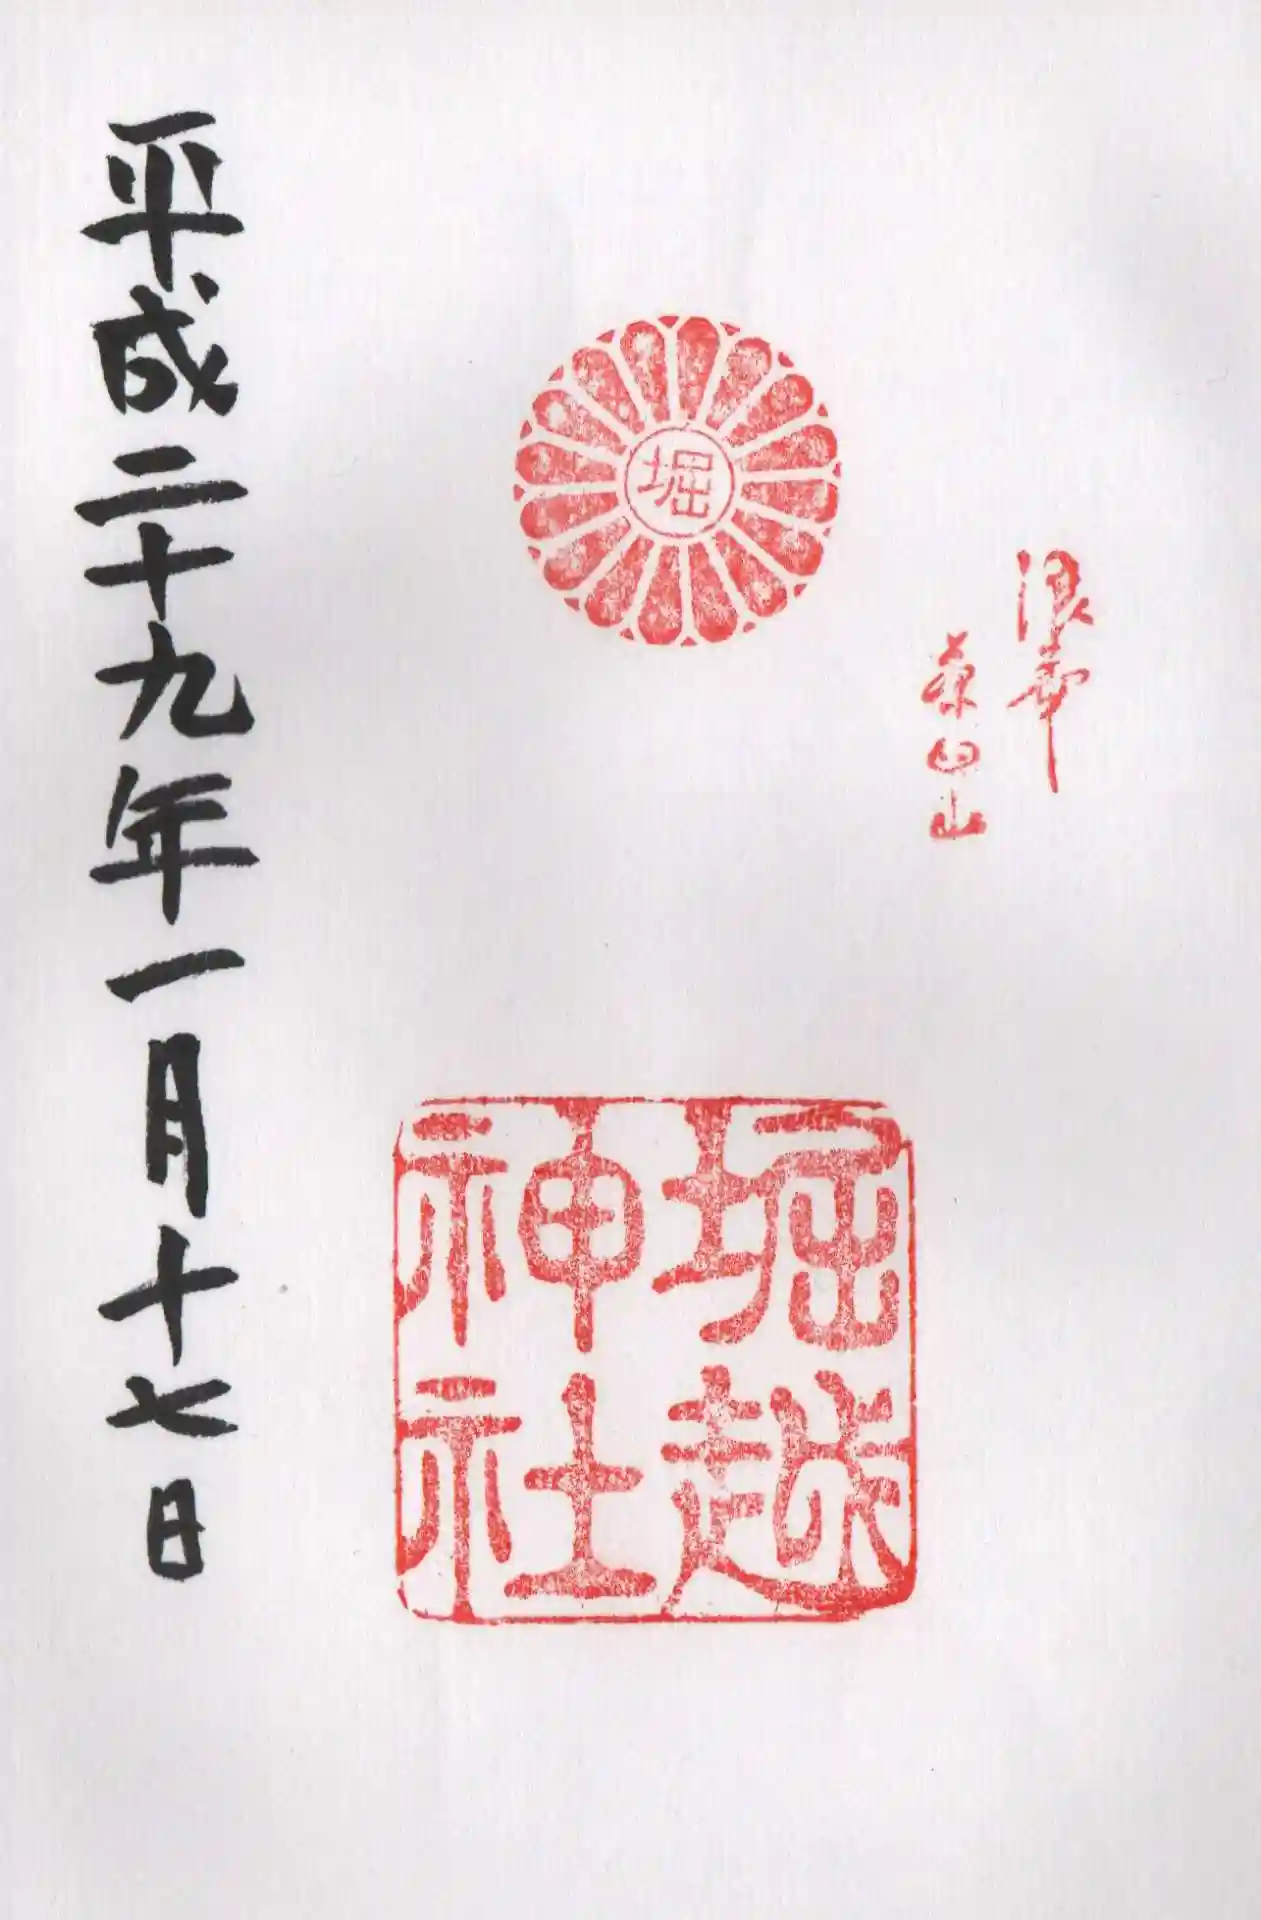 浪華
茶臼山
堀
堀越
神社
平成二十九年一月十七日